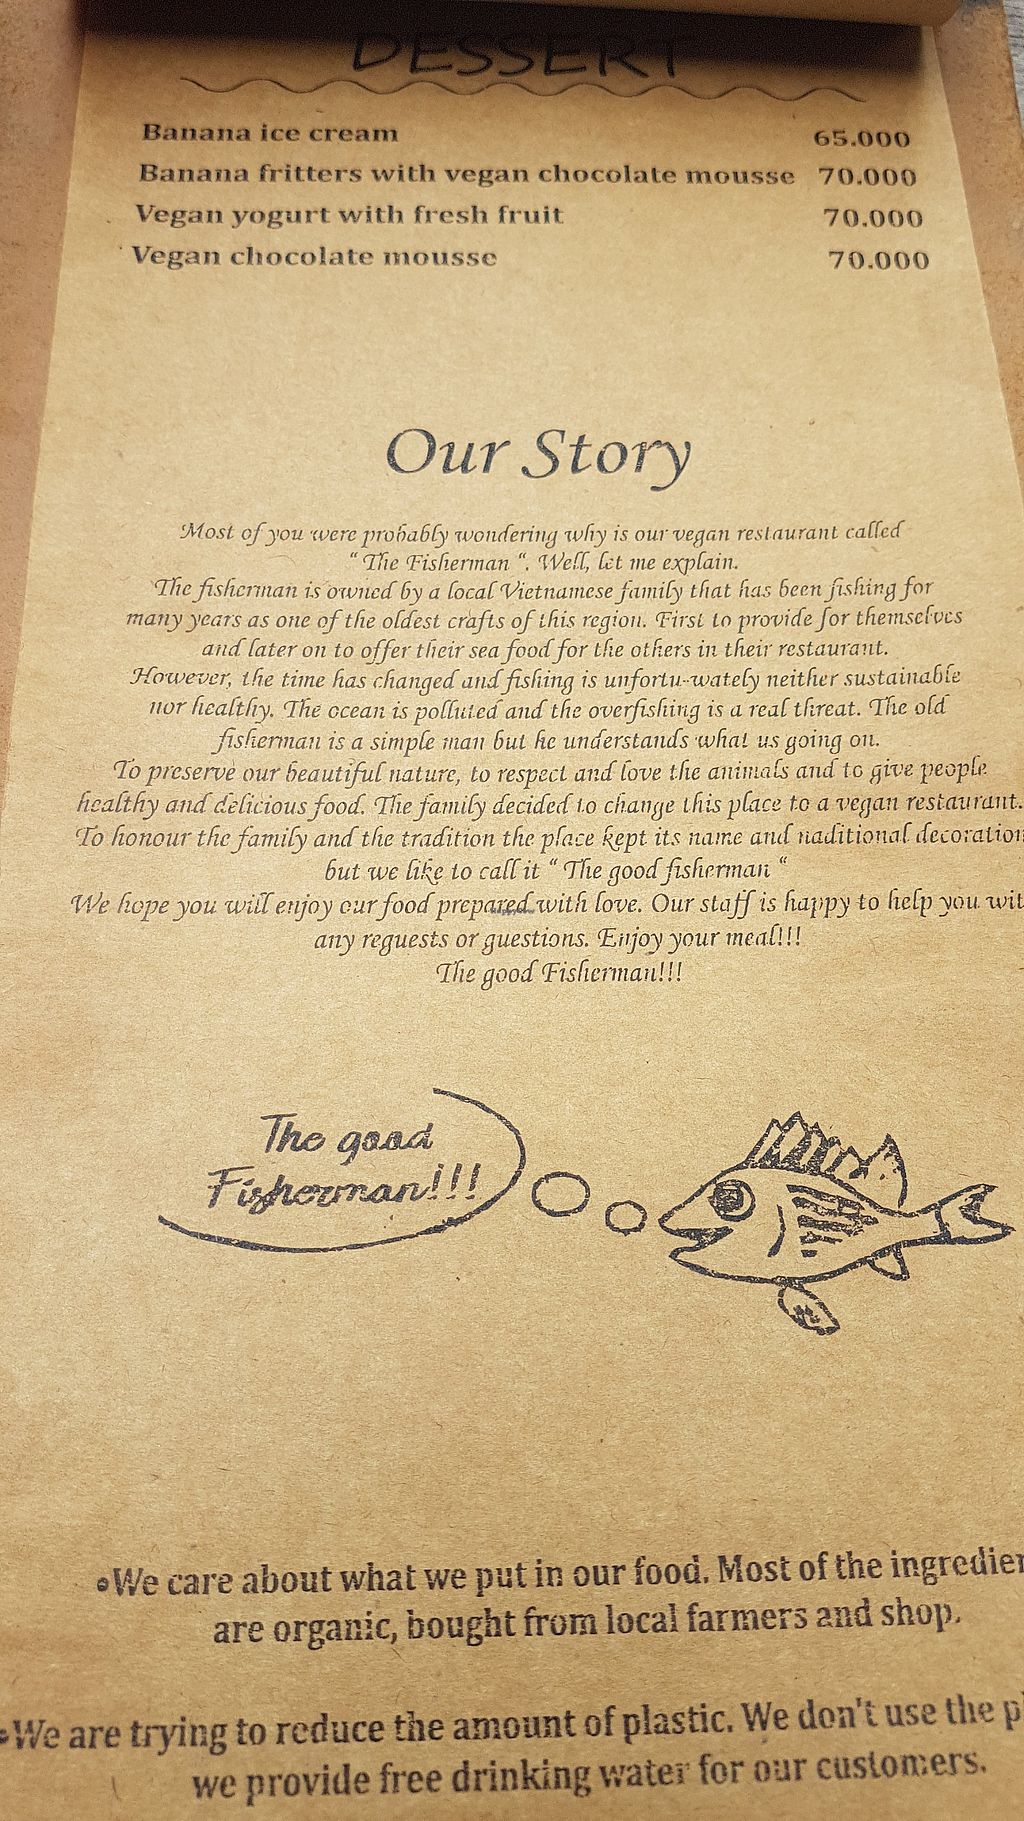 DESSERT
Banana ice cream 65.000
Banana fritters with vegan chocolate mousse 70.000
Vegan yogurt with fresh fruit 70.000
Vegan chocolate mousse 70.000
Our Story
Most of you were probably wondering why is our vegan restaurant called
“ The Fisherman “. Well, let me explain.
The fisherman is owned by a local Vietnamese family that has been fishing for
many years as one of the oldest crafts of this region. First to provide for themselves
and later on to offer their sea food for the others in their restaurant.
However, the time has changed and fishing is unfortu-wately neither sustainable
nor healthy. The ocean is polluted and the overfishing is a real threat. The old
fisherman is a simple man but he understands what us going on.
To preserve our beautiful nature, to respect and love the animals and to give people
healthy and delicious food. The family decided to change this place to a vegan restaurant.
To honour the family and the tradition the place kept its name and naditional decoration
but we like to call it “ The good fisherman “
We hope you will enjoy our food prepared with love. Our staff is happy to help you wit
any reguests or guestions. Enjoy your meal!!!
The good Fisherman!!!
The good
Fisherman!!!
•We care about what we put in our food. Most of the ingredien
are organic, bought from local farmers and shop.
•We are trying to reduce the amount of plastic. We don't use the p
we provide free drinking water for our customers.